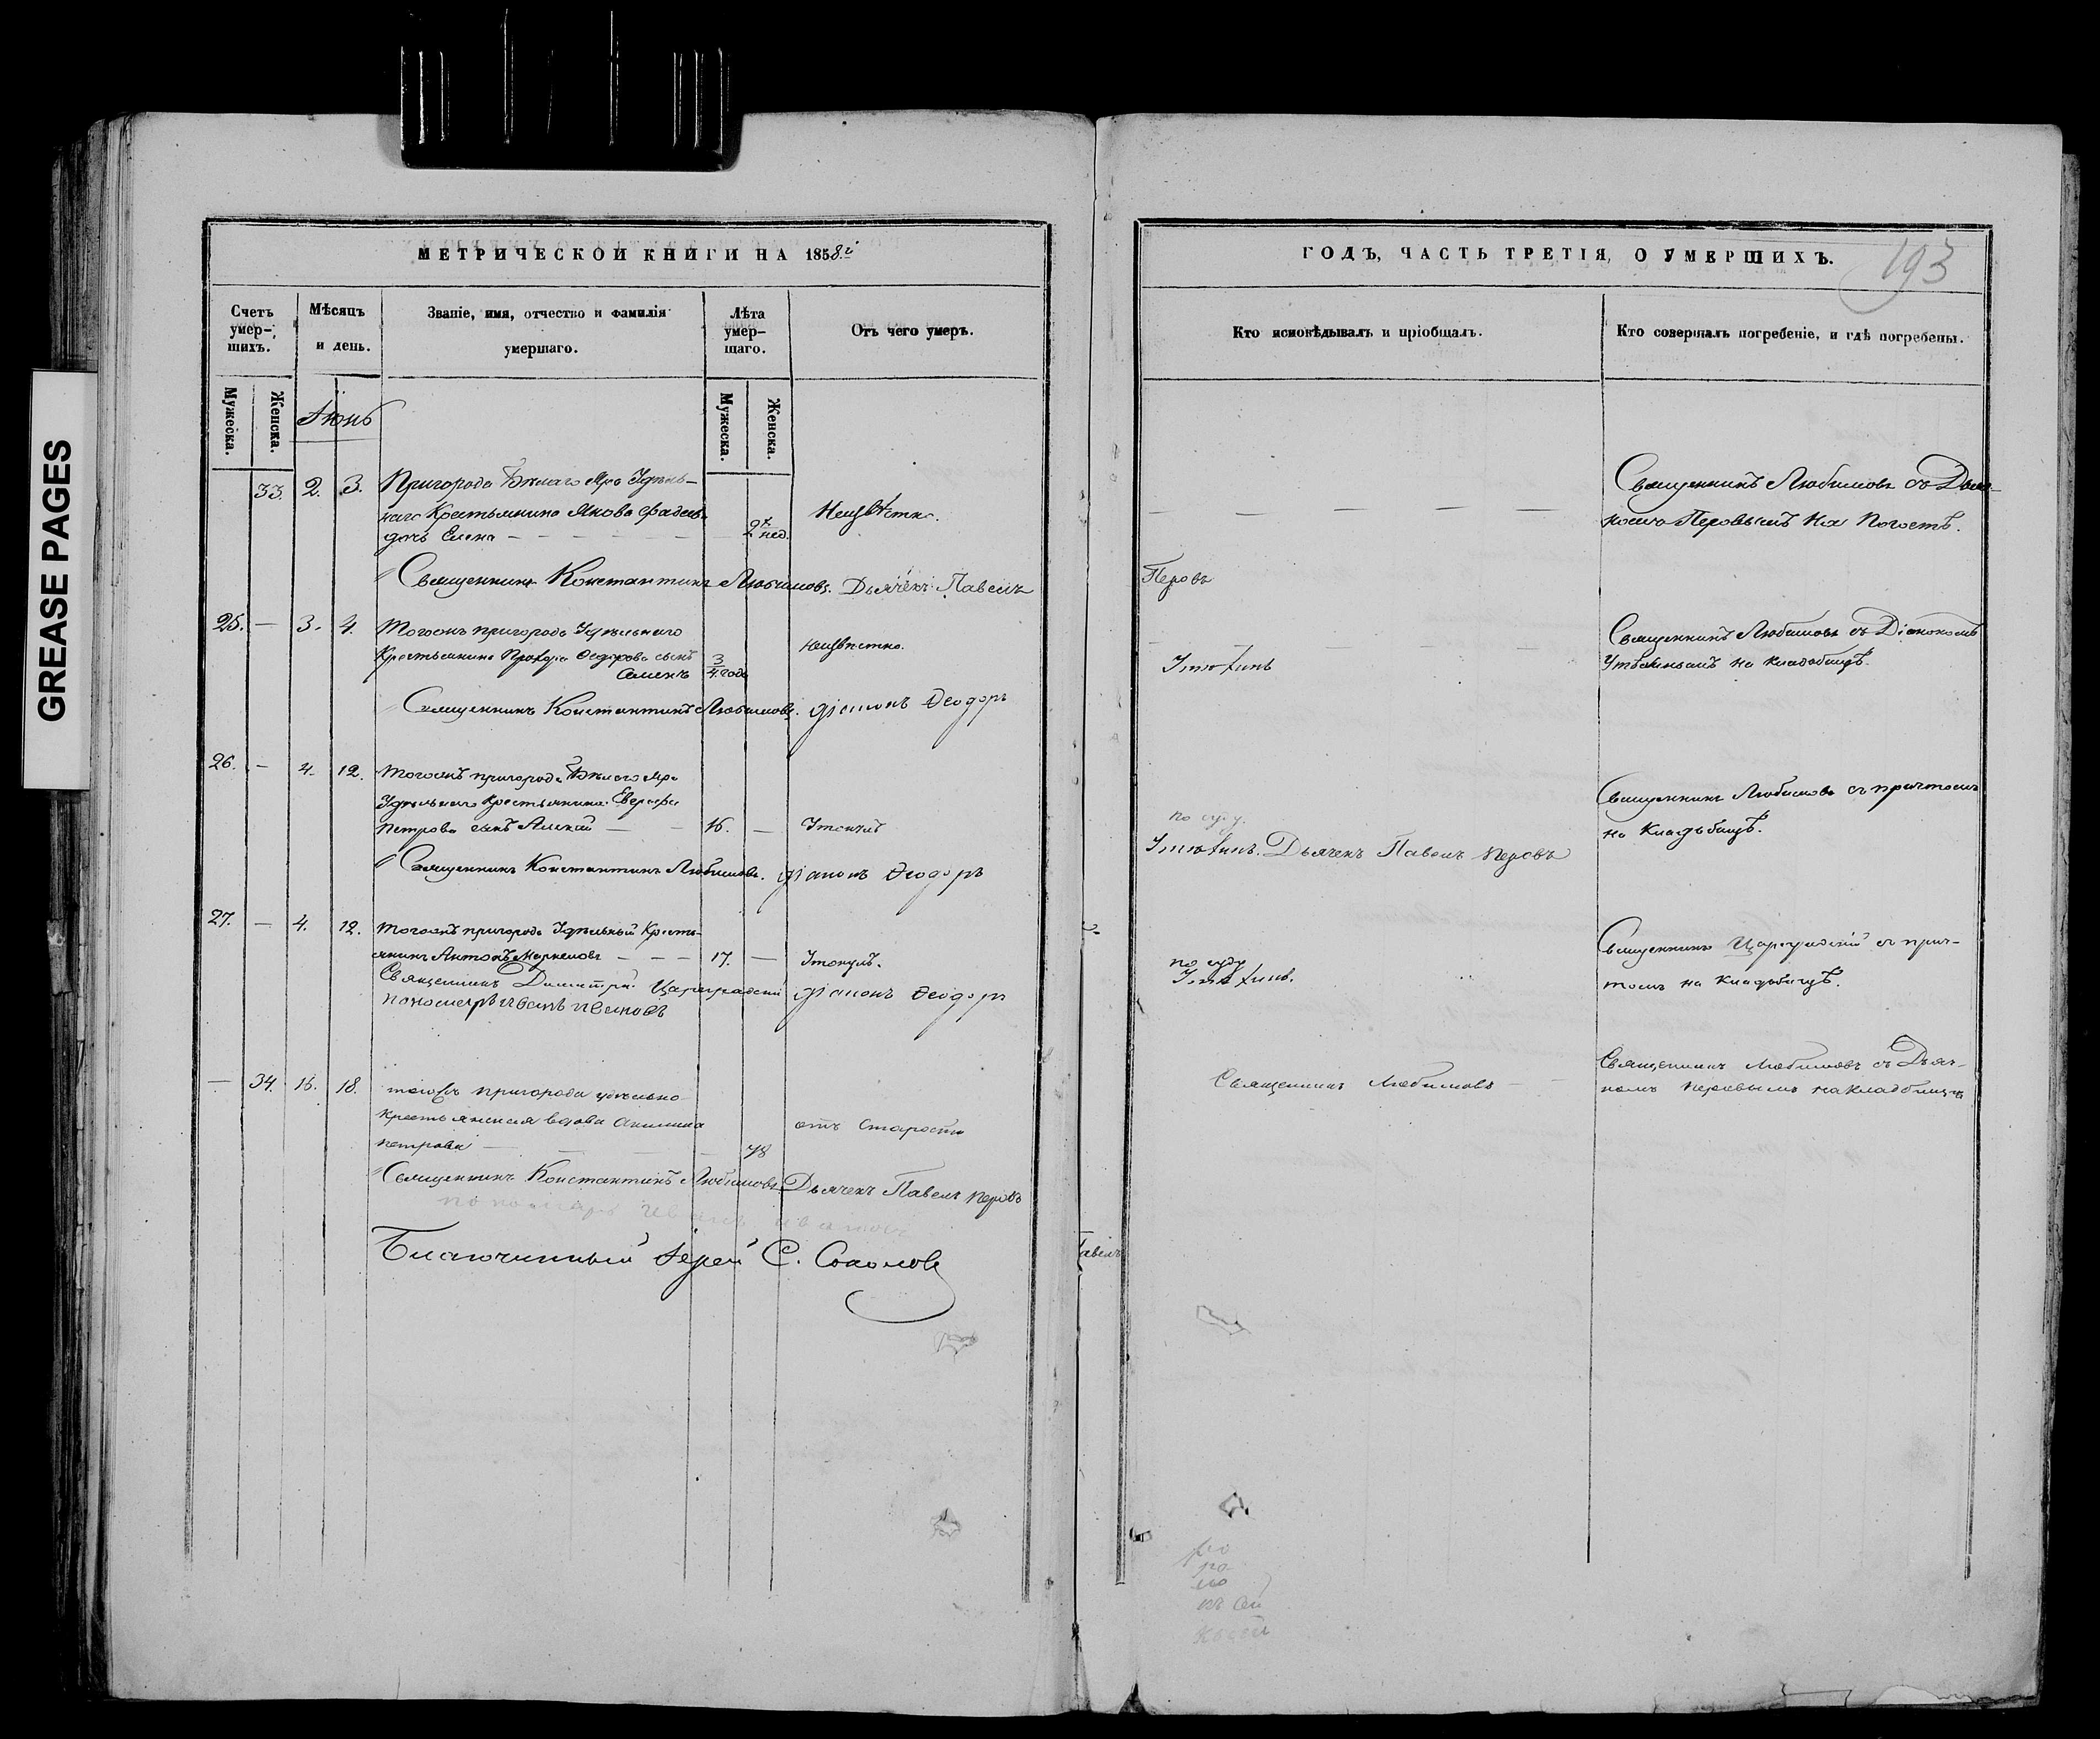 GREASE PAGES
МЕТРИЧЕСКОЙ КНИГИ НА 1858й
Счетъ умер-шихъ.
Мѣсяцъ и день.
Званіе, имя, отчество и фамилія умершаго.
Лѣта умер-шаго.
Отъ чего умеръ.
Мужеска.
Женска.
Мужеска.
Женска.
Іюнь
33. 2. 3. Пригорода Бѣлаго Яра Удѣль-
наго Крестьянина Якова
дочь Елена 2х нед. Неизвѣстно.
Священникъ Константинъ Любимовъ. Дьячекъ Павелъ
25. — 3. 4. Тогожъ пригорода Удѣльнаго
Крестьянина Ѳедорова сынъ
Семенъ 3/4 года неизвѣстно.
Священникъ Константинъ Любимовъ. діаконъ Ѳеодоръ
26. — 4. 12. Тогожъ пригорода Бѣлаго Яра
Удѣльнаго Крестьянина Евграфа
Петрова сынъ Алексѣй — 16. — Утонулъ
Священникъ Константинъ Любимовъ. діаконъ Ѳеодоръ
27. — 4. 12. Тогожъ пригорода Удѣльный Кресть-
янинъ Антонъ Маркеловъ — — — 17. — Утонулъ.
Священникъ Димитрій Цареградскій діаконъ Ѳеодоръ
пономарь Иванъ Ивановъ
— 34. 16. 18. тогожъ пригорода удѣльно
крестьянская вдова Акилина
петрова 78 отъ старости
Священникъ Константинъ Любимовъ Дьячекъ Павелъ Перовъ
пономарь Иванъ Ивановъ
Благочинный Іерей С. Соколовъ
ГОДЪ, ЧАСТЬ ТРЕТІЯ, О УМЕРШИХЪ.
193
Кто исповѣдывалъ и пріобщалъ.
Кто совершалъ погребеніе, и гдѣ погребены.
Священникъ Любимовъ съ Дьяч-
комъ Перовымъ на Погостѣ.
Перовъ
Священникъ Любимовъ съ Діакономъ
на кладбищѣ.
Священникъ Любимовъ съ причтомъ
на кладбищѣ.
по суду.
Дьячекъ Павелъ Перовъ
Священникъ Цареградскій съ прич-
томъ на кладбищѣ.
по суду
Священникъ Любимовъ
Священникъ Любимовъ съ Дьяч-
комъ Перовымъ на кладбищѣ